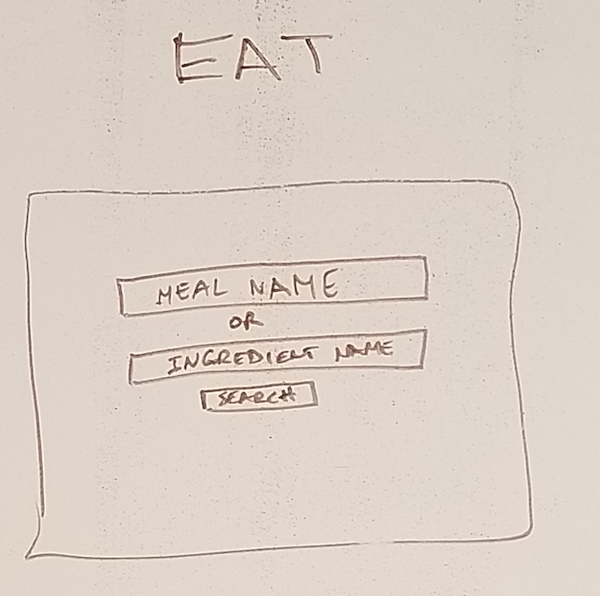 EAT
MEAL NAME
OR
INGREDIENT NAME
SEARCH